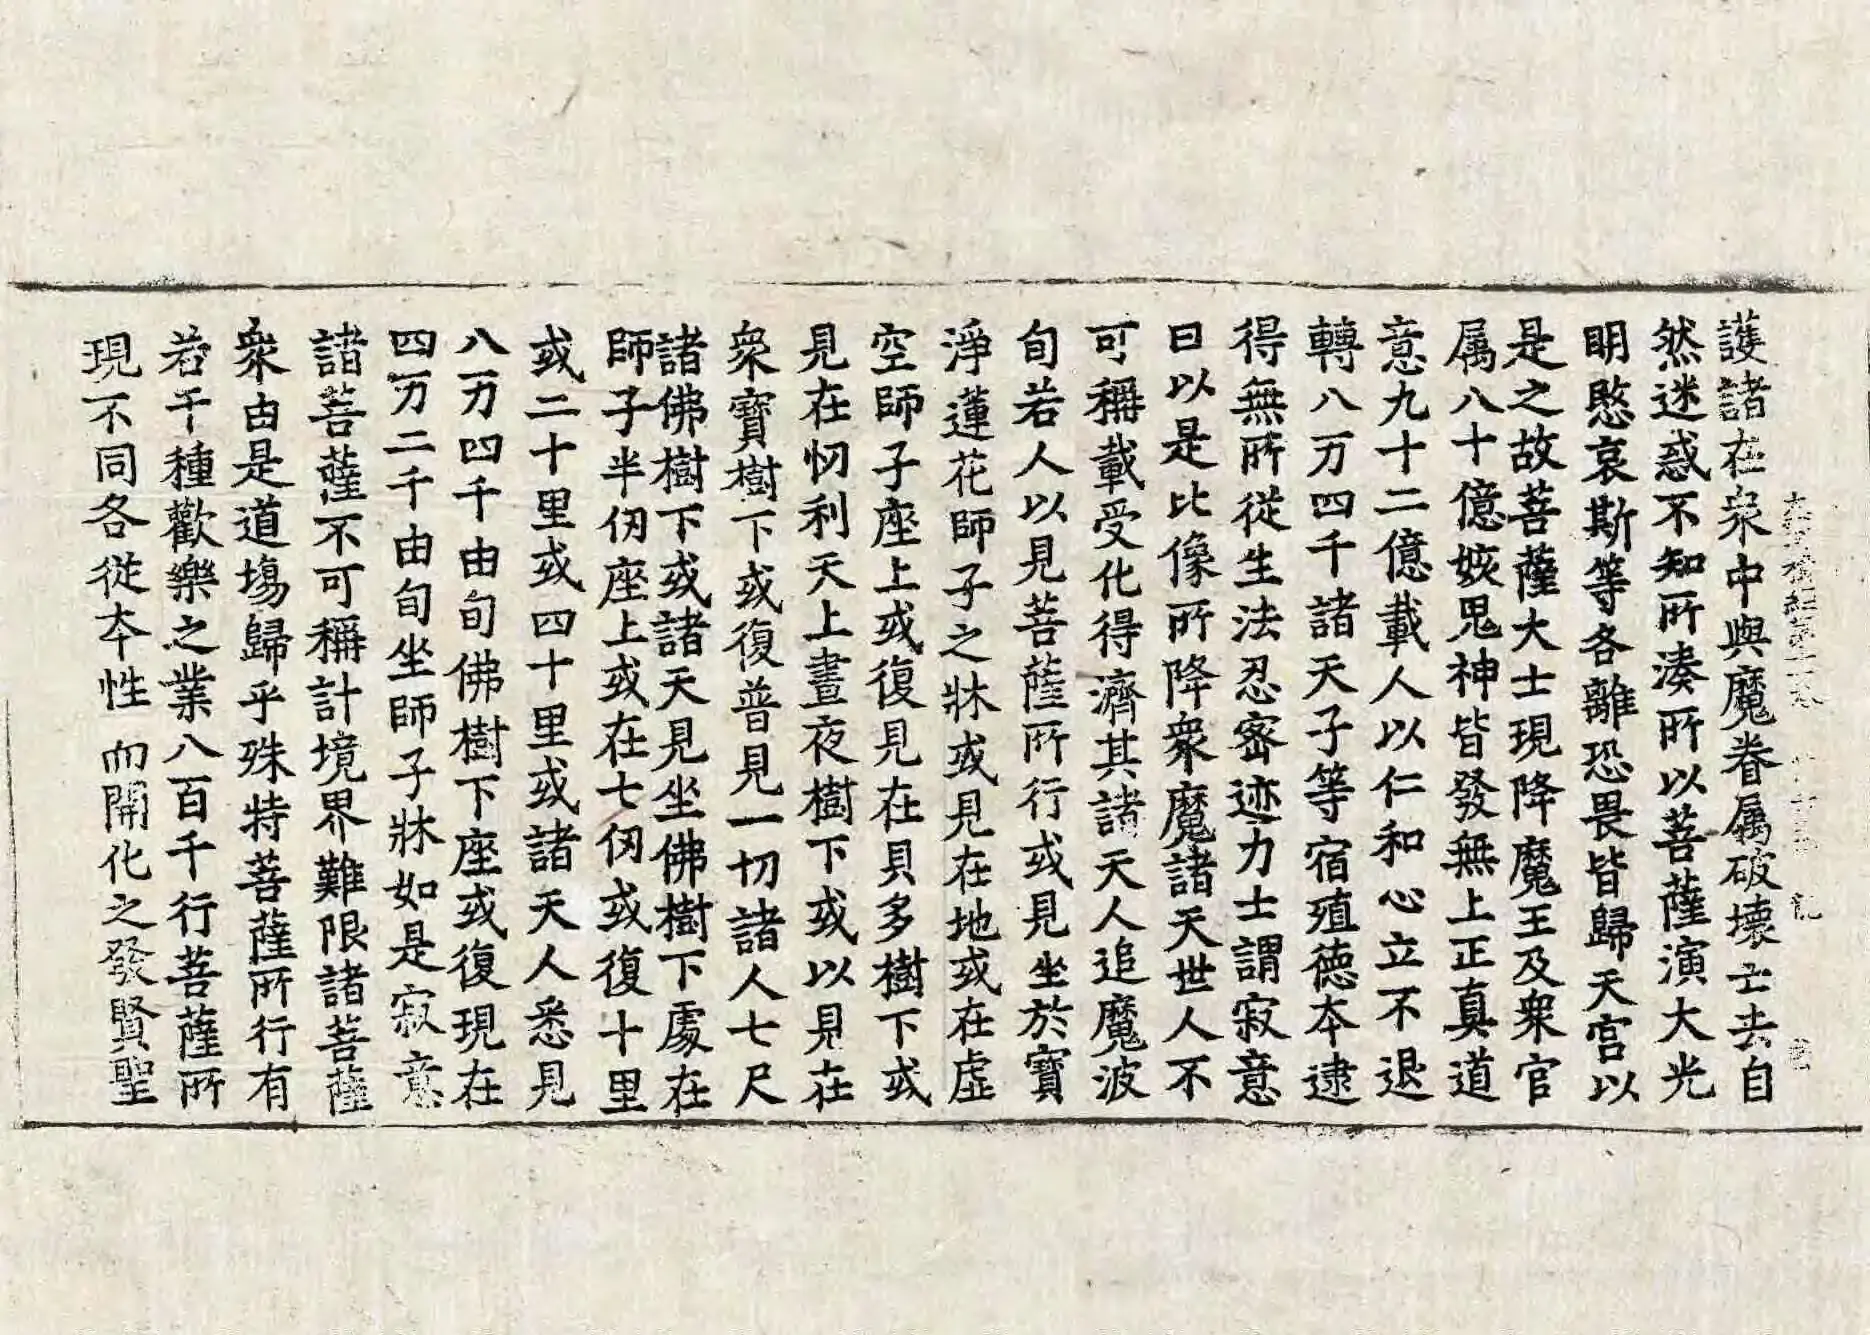 護諸在衆中與魔眷属破壊亡去自
然迷惑不知所湊所以菩薩演大光
明愍哀斯等各離恐畏皆歸天宮以
是之故菩薩大士現降魔王及衆官
属八十億姟鬼神皆發無上正真道
意九十二億載人以仁和心立不退
轉八万四千諸天子等宿殖德夲逮
得無所從生法忍密迹力士謂寂意
曰以是比像所降衆魔諸天世人不
可稱載受化得濟其諸天人追魔波
旬若人以見菩薩所行或見坐於寶
淨蓮花師子之牀或見在地或在虛
空師子座上或復見在貝多樹下或
見在忉利天上晝夜樹下或以見在
衆寶樹下或復普見一切諸人七尺
諸佛樹下或諸天見坐佛樹下處在
師子半仞座上或在七仞或復十里
或二十里或四十里或諸天人悉見
八万四千由旬佛樹下座或復現在
四万二千由旬坐師子牀如是寂意
諸菩薩不可稱計境界難限諸菩薩
衆由是道塲歸乎殊特菩薩所行有
若干種歡樂之業八百千行菩薩所
現不同各從夲性而開化之發賢聖